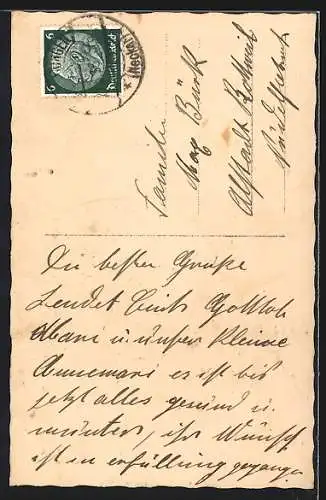 6
Deutsches Reich
6
Familie
Max Bürk
Altstadt Rottweil
Die besten Grüße
sendet Euch Gottlob
Mari u. unsere kleine
Annemari es ist bis
jetzt alles gesund u.
munter, ihr Wunsch
ist in erfüllung gegangen